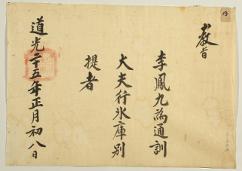 教旨
李鳳九為通訓
大夫行氷庫別
提者
道光二十五年正月初八日